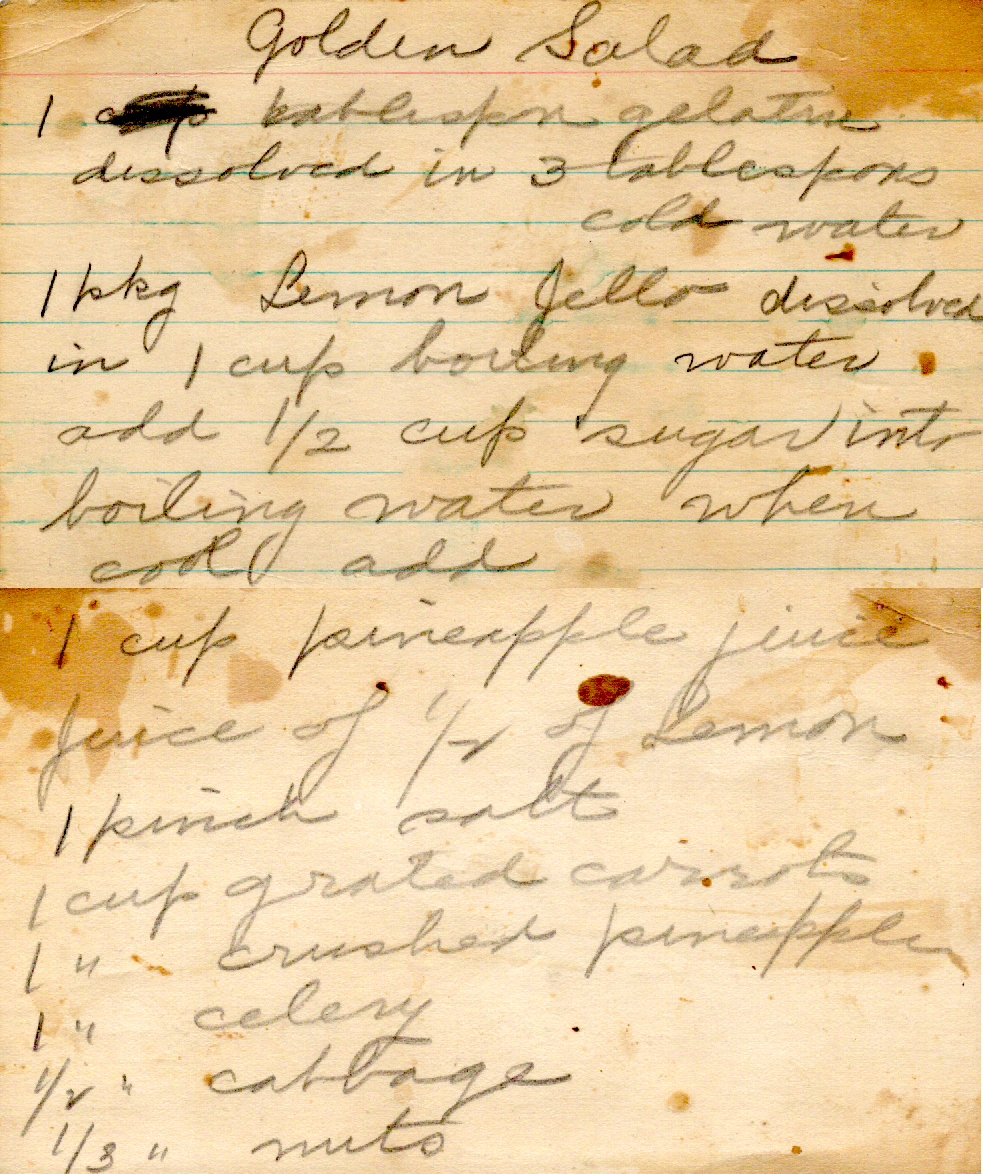 Golden Salad
1 tablespon gelatin
dissolved in 3 tablespons
cold water
1 pkg Lemon Jello dissolved
in 1 cup boiling water
add 1/2 cup sugar into
boiling water when
cool add
1 cup pineapple juice
juice of 1/2 of Lemon
1 pinch salt
1 cup grated carrots
1 " crushed pineapple
1 " celery
1/2 " cabbage
1/3 " nuts